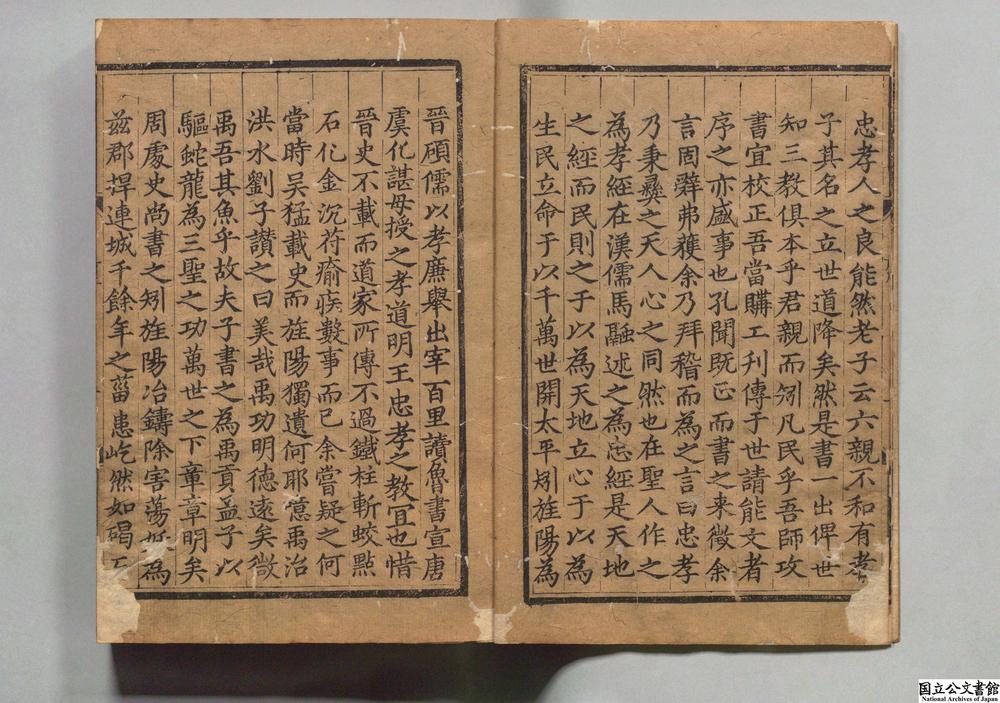 忠孝人之良能然老子云六親不和有孝
子其名之立世道降矣然是書一出俾世
知三教俱本乎君親而矧凡民乎吾師攻
書宜校正吾當購工刋傳于世請能文者
序之亦盛事也孔聞既正而書之来徵余
言固辤弗獲余乃拜稽而為之言曰忠孝
乃秉彝之天人心之同然也在聖人作之
為孝經在漢儒馬融述之為忠經是天地
之經而民則之于以為天地立心于以為
生民立命于以千萬世開太平矧旌陽為
晉碩儒以孝廉舉出宰百里讀魯書宣唐
虞化諶母授之孝道明王忠孝之教冝也惜
晉史不載而道家所傳不過鐵柱斬蛟㸃
石化金沉符瘉疾數事而已余嘗疑之何
當時吴猛載史而旌陽獨遺何耶憶禹治
洪水劉子讃之曰美哉禹功明德遠矣微
禹吾其魚乎故夫子書之為禹貢孟子以
驅蛇龍為三聖之功萬世之下章章明矣
周處史尚書之矧旌陽冶鑄除害蕩妖為
兹郡捍連城千餘年之菑患屹然如碣石
国立公文書館
National Archives of Japan